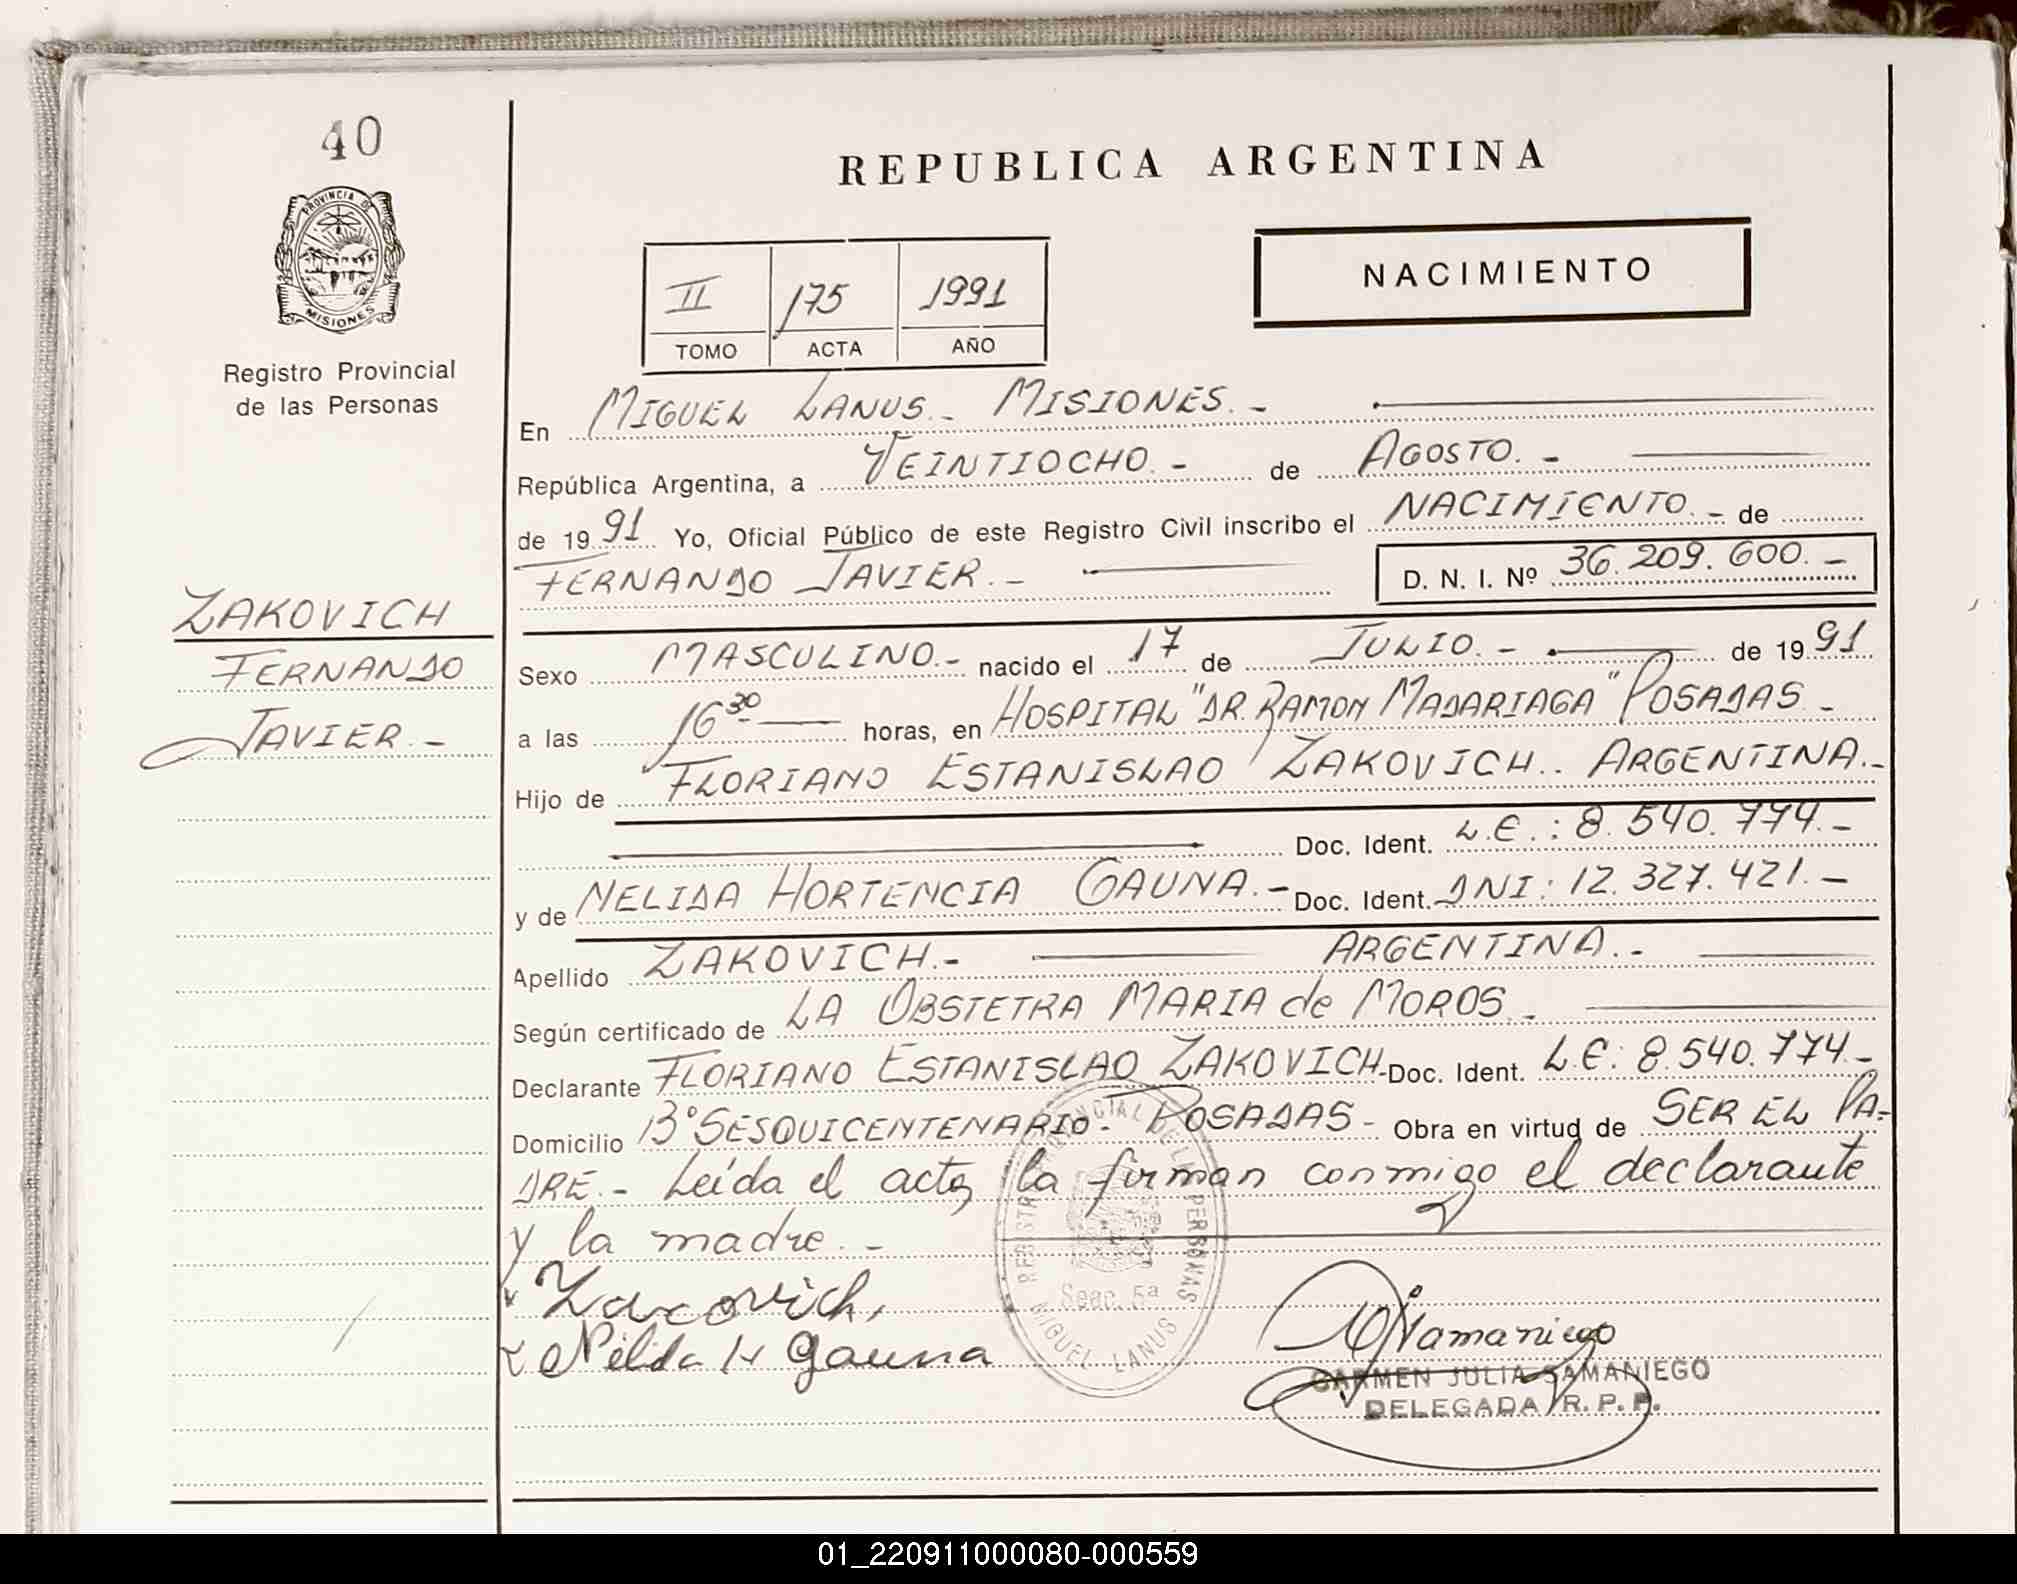 40
REPUBLICA ARGENTINA
PROVINCIA DE
MISIONES
NACIMIENTO
II 175 1991
TOMO ACTA AÑO
Registro Provincial
de las Personas
En MIGUEL LANUS.- MISIONES.-
República Argentina, a VEINTIOCHO.- de AGOSTO.-
de 1991 Yo, Oficial Público de este Registro Civil inscribo el NACIMIENTO.- de
FERNANDO JAVIER.- D. N. I. Nº 36.209.600.-
ZAKOVICH
FERNANDO
JAVIER.-
Sexo MASCULINO.- nacido el 17 de JULIO.- de 1991
a las 16 30 horas, en HOSPITAL "DR. RAMON MADARIAGA" POSADAS-
Hijo de FLORIANO ESTANISLAO ZAKOVICH.. ARGENTINA.-
Doc. Ident. L.E.: 8.540.774.-
y de NELIDA HORTENCIA GAUNA.- Doc. Ident. DNI: 12.327.421.-
Apellido ZAKOVICH.- ARGENTINA.-
Según certificado de LA OBSTETRA MARIA de MOROS.-
Declarante FLORIANO ESTANISLAO ZAKOVICH- Doc. Ident. L.E: 8.540.774.-
Domicilio Bº SESQUICENTENARIO- POSADAS- Obra en virtud de SER EL PA-
DRE.- Leída el acta, la firman conmigo el declarante
y la madre.-
Zacovich
Nélida H Gauna
REGISTRO PROVINCIAL DE LAS PERSONAS
Secc. 5ª
MIGUEL LANUS
Samaniego
CARMEN JULIA SAMANIEGO
DELEGADA R. P. P.
01_220911000080-000559